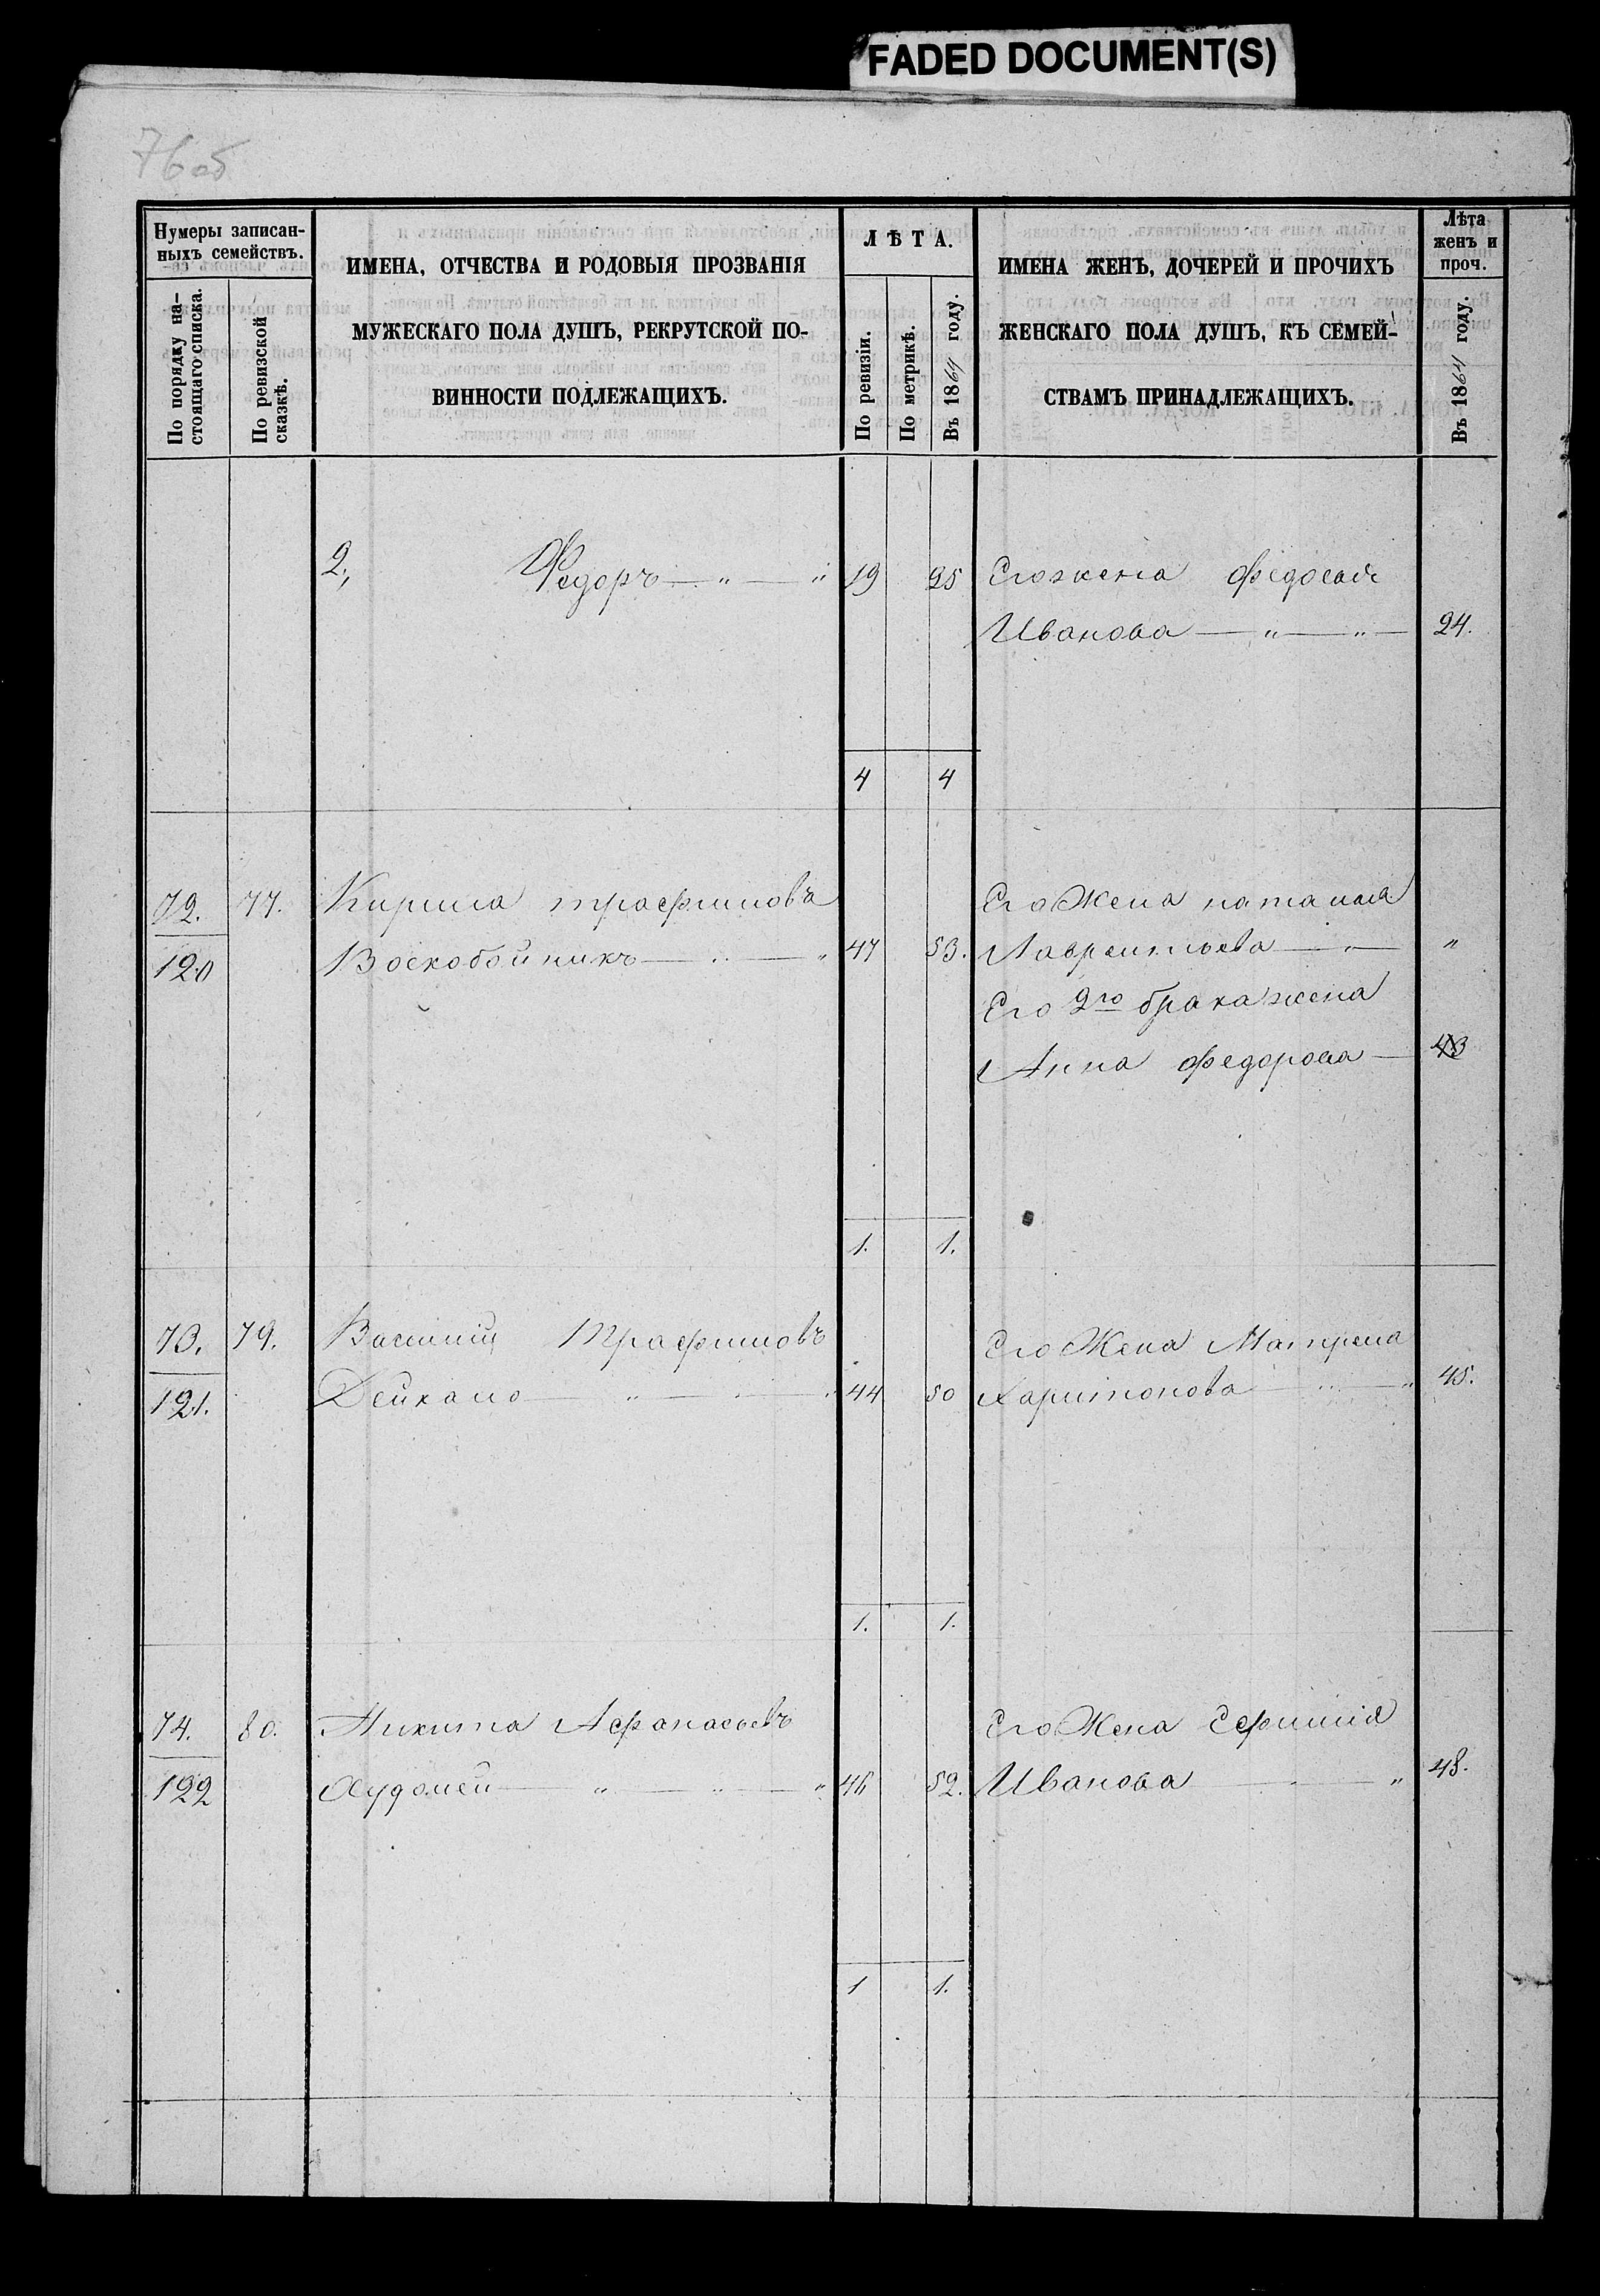 FADED DOCUMENT(S)
76об
Нумеры записан-
ныхъ семействъ.
По порядку на-
стоящаго списка.
По ревизской
сказкѣ.
ИМЕНА, ОТЧЕСТВА И РОДОВЫЯ ПРОЗВАНІЯ
МУЖЕСКАГО ПОЛА ДУШЪ, РЕКРУТСКОЙ ПО-
ВИННОСТИ ПОДЛЕЖАЩИХЪ.
ЛѢТА.
По ревизіи.
По метрикѣ.
Въ 1864 году.
ИМЕНА ЖЕНЪ, ДОЧЕРЕЙ И ПРОЧИХЪ
ЖЕНСКАГО ПОЛА ДУШЪ, КЪ СЕМЕЙ-
СТВАМЪ ПРИНАДЛЕЖАЩИХЪ.
Лѣта
женъ и
проч.
Въ 1864 году.
2, Федоръ — " — " 19 25 Его жена Федосия
Иванова — " — " — 24.
4 4
72. 77. Кирила трафимовъ Его Жена наталия
120 Воскобойникъ — " — " 47 53. Лаврентьева — " — "
Его 2го брака жена
Анна федорова — 43
1. 1.
73. 79. Василий Трафимовъ Его Жена Матрена
121. Дейкало — " — " 44 50 Харитонова — " — " 45.
1. 1.
74. 80. Никита Афанасьевъ Его Жена Ефимия
122 Худолей — " — " — " 46 52. Иванова — " 48.
1 1.